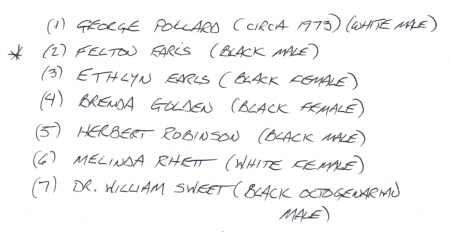 (1) GEORGE POLLARD (CIRCA 1973) (WHITE MALE)
* (2) FELTON EARLS (BLACK MALE)
(3) ETHLYN EARLS (BLACK FEMALE)
(4) BRENDA GOLDEN (BLACK FEMALE)
(5) HERBERT ROBINSON (BLACK MALE)
(6) MELINDA RHETT (WHITE FEMALE)
(7) DR. WILLIAM SWEET (BLACK OCTOGENARIAN
MALE)